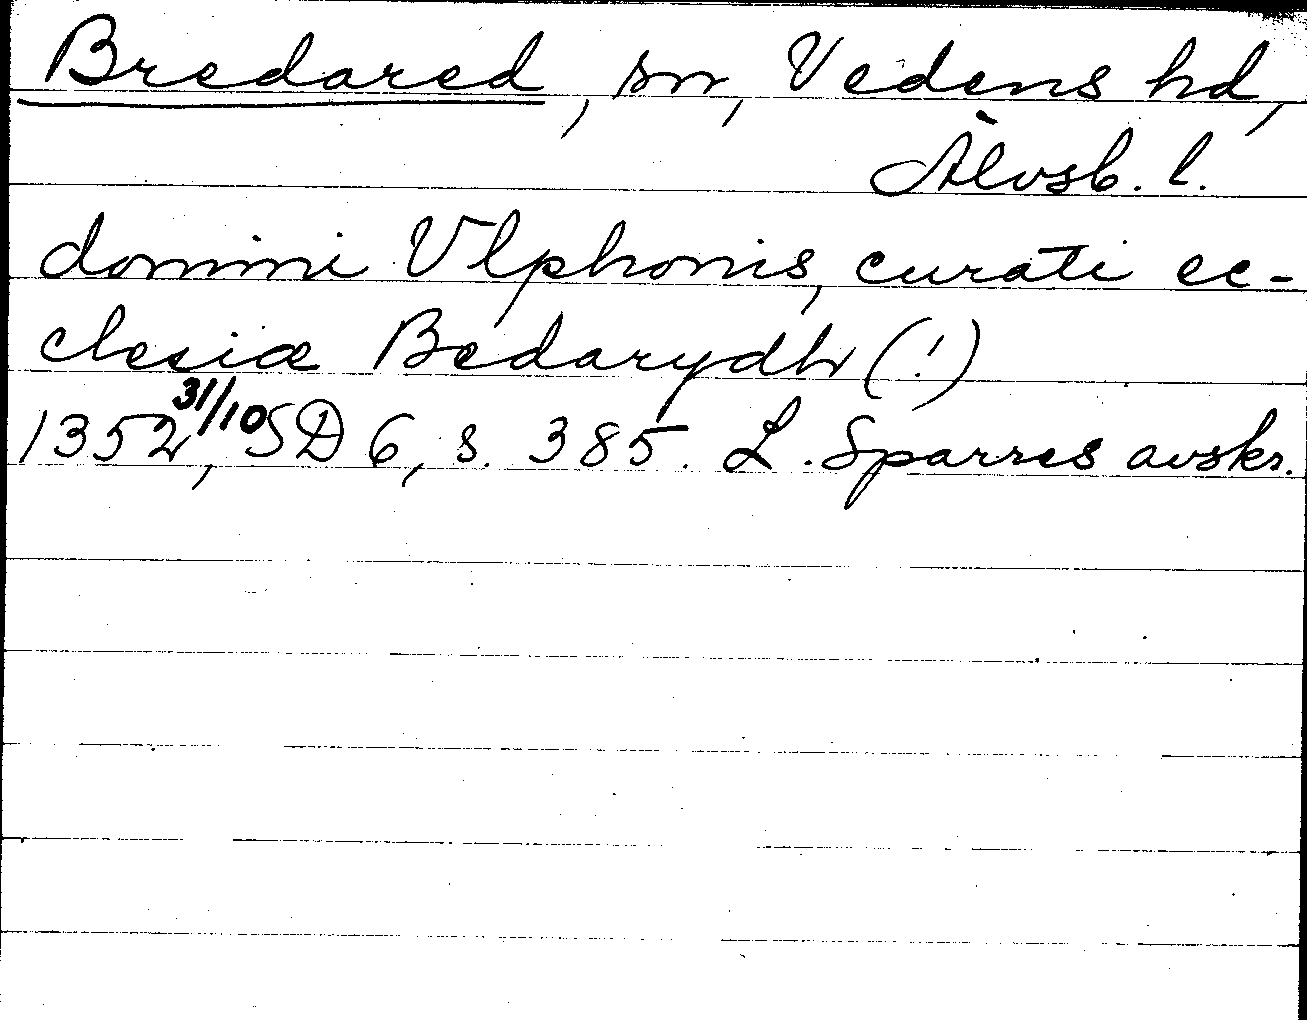 Bredared, sn, Vedens hd,
Älvsb. l.
domini Vlphonis, curati ec-
clesiæ Bedarydh (!)
1352 31/10, SD 6, s. 385. L. Sparres avskr.